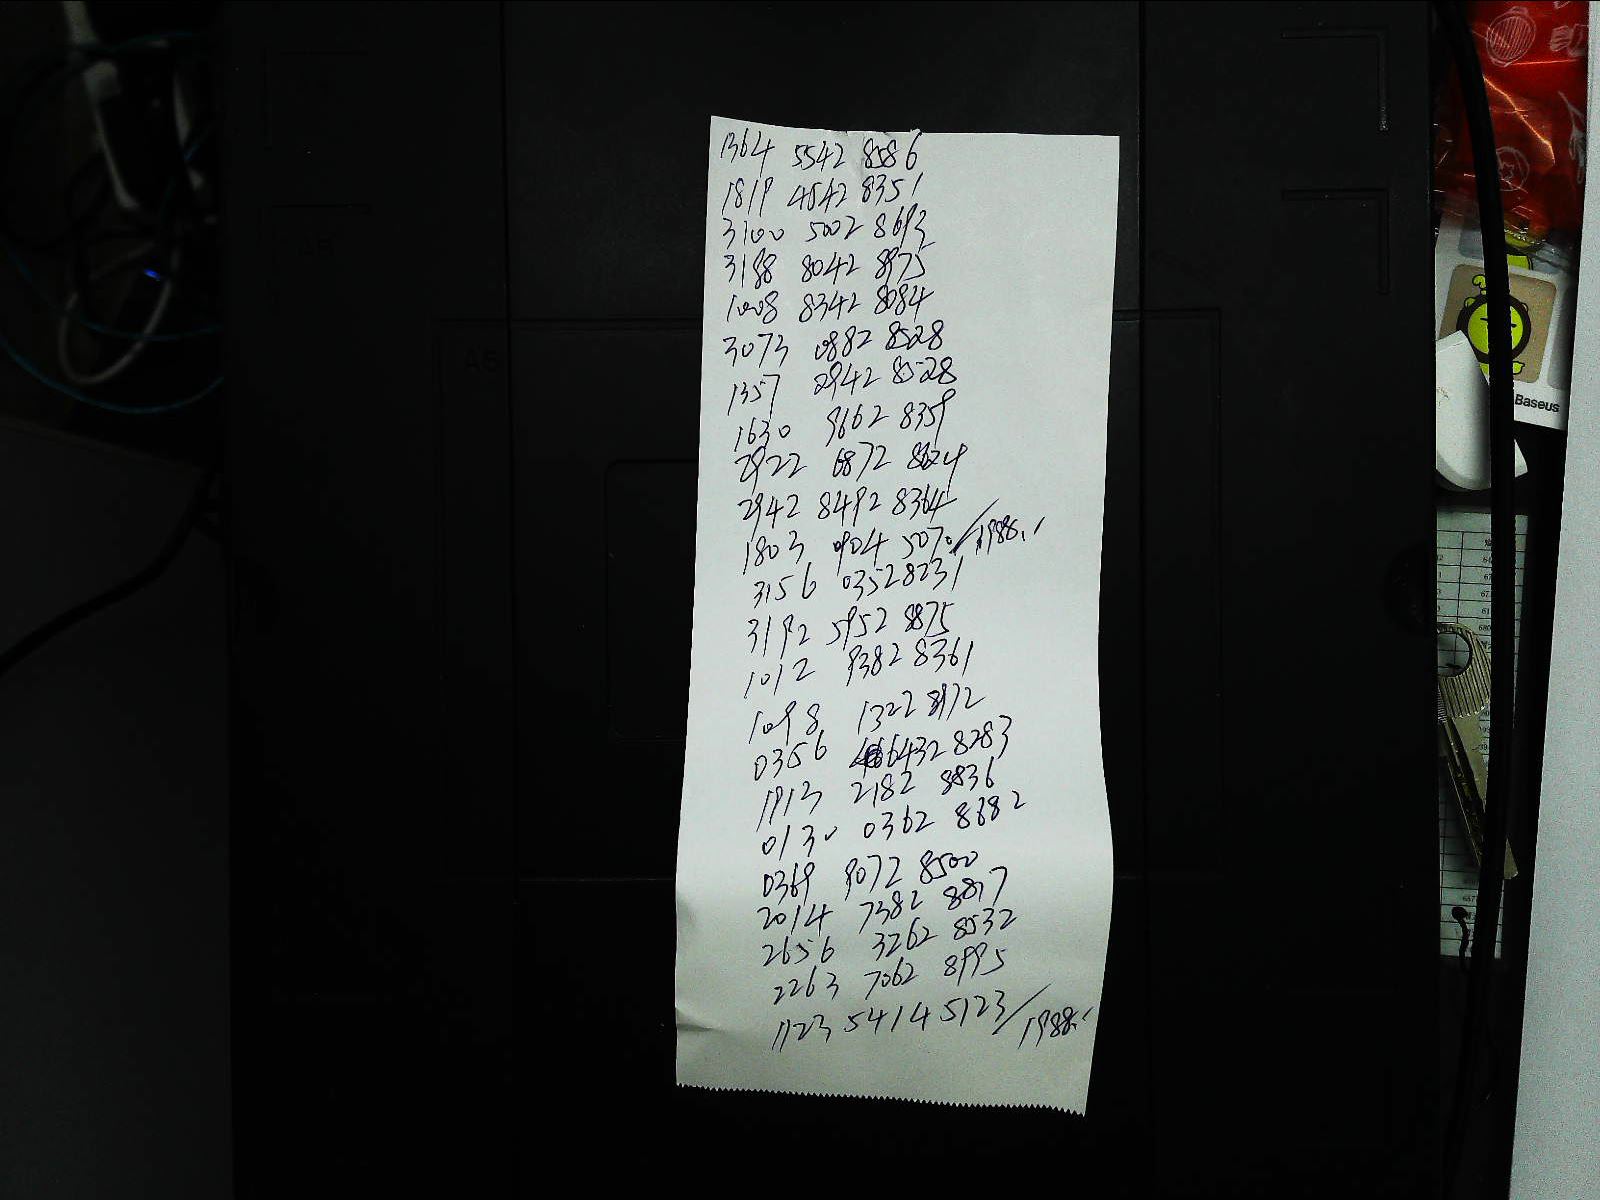 1364 5542 8586
1819 4542 8351
3100 5002 8693
3198 8042 8975
1008 8342 8084
3073 0882 8528
1357 2942 8528
1630 9662 8359
2922 6872 8624
2942 8492 8364
1803 0904 5070/1988..
3156 0352 8231
3192 5952 8875
1012 9382 8361
1098 1322 8972
0356 6432 8283
1913 2182 8836
0130 0362 8682
0369 9072 8500
2014 7382 8817
2656 3262 8532
2263 7062 8995
1123 5414 5123/1988..
A5
Baseus